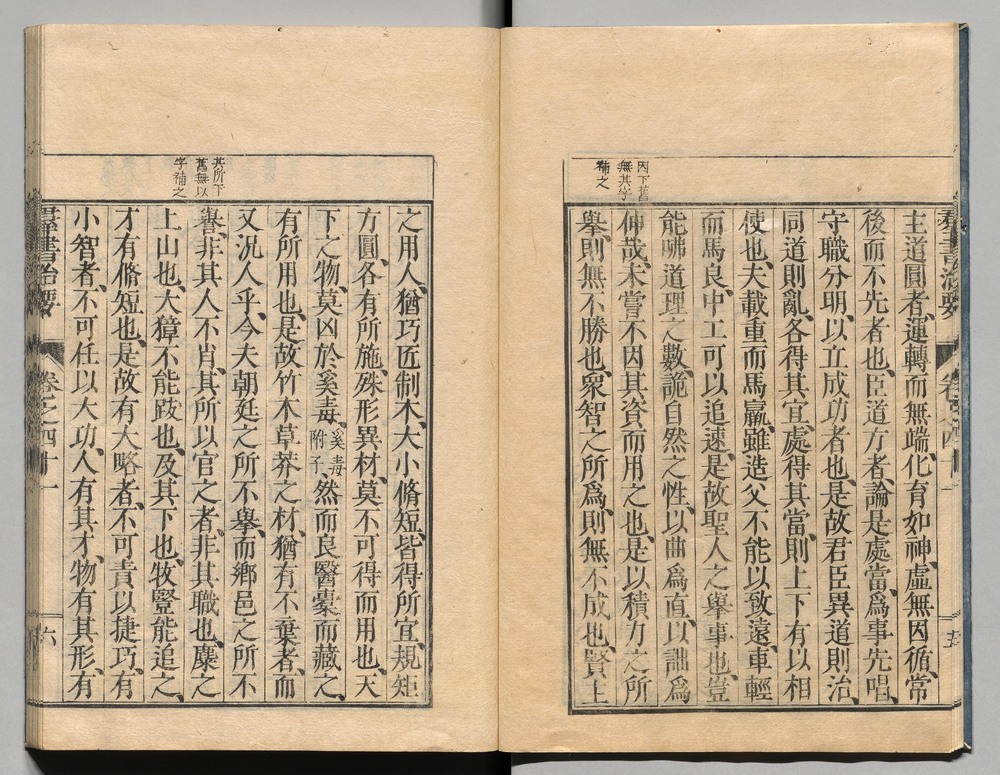 羣書治要
卷之四十一
五
因下舊
無其字
補之
主道圓者、運轉而無端、化育如神、虛無因循、常
後而不先者也、臣道方者、論是處當、爲事先唱、
守職分明、以立成功者也、是故君臣異道則治、
同道則亂、各得其宜、處得其當、則上下有以相
使也、夫載重而馬羸、雖造父不能以致遠、車輕
而馬良、中工可以追速、是故聖人之舉事也、豈
能咈道理之數、詭自然之性、以曲爲直、以詘爲
伸哉、未嘗不因其資而用之也、是以積力之所
舉、則無不勝也、衆智之所爲、則無不成也、賢主
其所下
舊無以
字補之
之用人、猶巧匠制木、大小脩短、皆得所宜、規矩
方圓、各有所施、殊形異材、莫不可得而用也、天
下之物、莫凶於奚毒、奚毒附子、然而良醫橐而藏之、
有所用也、是故竹木草莽之材、猶有不棄者、而
又況人乎、今夫朝廷之所不舉、而鄉邑之所不
譽、非其人不肖、其所以官之者、非其職也、麋之
上山也、大獐不能跂也、及其下也、牧豎能追之、
才有脩短也、是故有大略者、不可責以捷巧、有
小智者、不可任以大功、人有其才、物有其形、有
羣書治要
卷之四十一
六